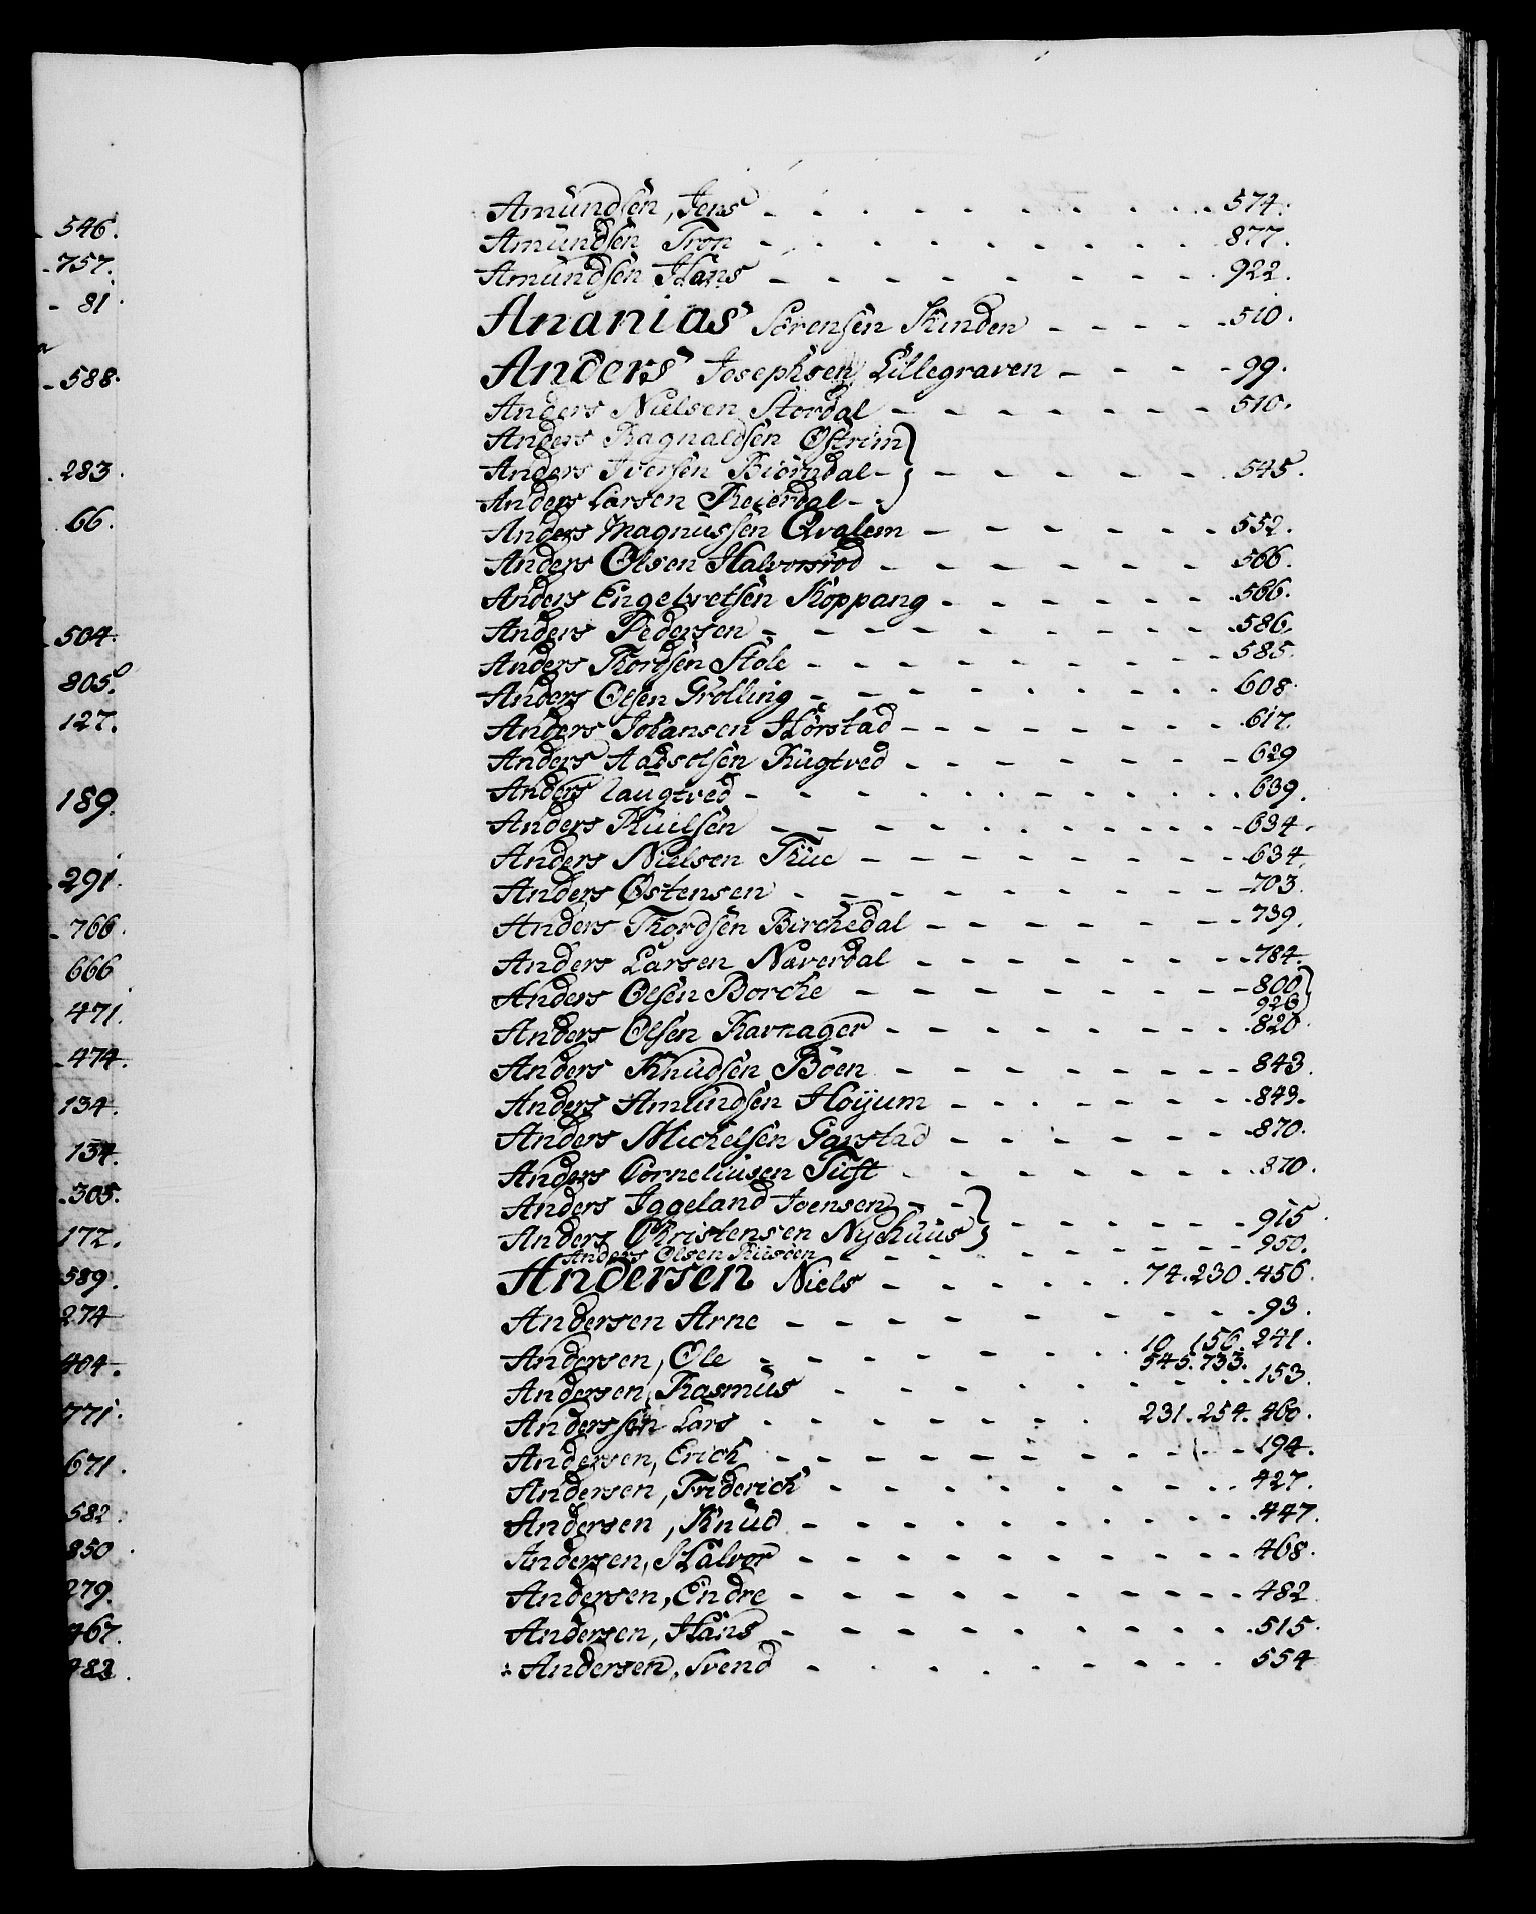 546.
757.
81.
588.
283.
66.
504.
805.
127.
189.
291.
766.
666
471.
474.
134.
134.
305.
172.
589.
274
404.
771.
671.
582.
850.
279.
467.
483.
Amundsen, Jens - - - 574.
Amundsen Tron - - - 877.
Amundsen Hans - - - 922.
Ananias Sørensen Kinden - - - 510.
Anders Josephsen Lillegraven - - - 99.
Anders Nielsen Stordal - - - 510.
Anders Ragnaldsen Østrim }
Anders Iversen Biörndal - } - - - 545.
Anders Larsen Reierdal - - }
Anders Magnussen Qvalem - - - 552.
Anders Olsen Halvorsröd - - - 566.
Anders Engelvetsen Koppang - - - 566.
Anders Pedersen - - - 586.
Anders Thordsen Stole - - - 585.
Anders Olsen Grölling - - - 608.
Anders Johansen Hörstad - - - 617.
Anders Aadsotsen Rugtved - - - 629
Anders Laugtved - - - 639.
Anders Poulsen - - - 634.
Anders Nielsen True - - - 634.
Anders Østensen - - - 703.
Anders Thordsen Birchedal - - - 739.
Anders Larsen Naverdal - - - 784.
Anders Olsen Borche - - - 800 }
926 }
Anders Olsen Ravnager - - - 820.
Anders Knudsen Böen - - - 843.
Anders Amundsen Höyum - - - 843.
Anders Michelsen Garstad - - - 870.
Anders Corneliusen Tuft - - - 870.
Anders Iggeland Joensen - - }
Anders Christensen Nyehuus } - - - 915
Anders Olsen - - - 950.
Andersen Niels - - - 74. 230. 456.
Andersen Arne - - - 93.
Andersen, Ole - - - 10. 156. 241.
545. 733.
Andersen, Rasmus - - - 153.
Anderssen Lars - - - 231. 254. 460.
Andersen, Erich - - - 194.
Andersen, Friderich - - - 427.
Andersen, Knud - - - 447.
Andersen, Halvor - - - 468.
Andersen, Endre - - - 482
Andersen, Hans - - - 515.
Andersen, Svend - - - 554